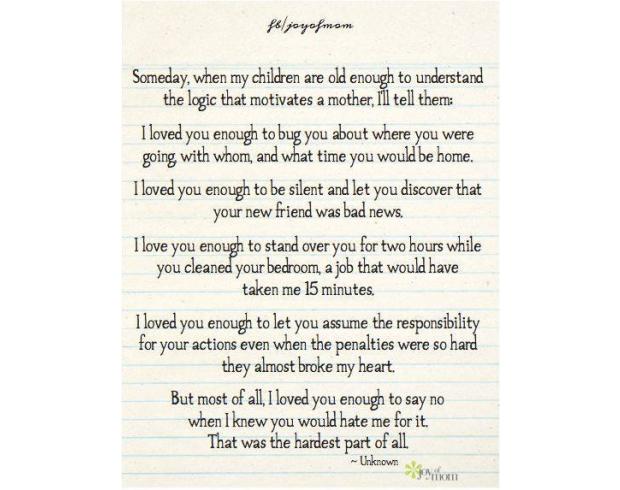 fb/joyofmom
Someday, when my children are old enough to understand
the logic that motivates a mother, I'll tell them:
I loved you enough to bug you about where you were
going, with whom, and what time you would be home.
I loved you enough to be silent and let you discover that
your new friend was bad news.
I love you enough to stand over you for two hours while
you cleaned your bedroom, a job that would have
taken me 15 minutes.
I loved you enough to let you assume the responsibility
for your actions even when the penalties were so hard
they almost broke my heart.
But most of all, I loved you enough to say no
when I knew you would hate me for it.
That was the hardest part of all.
~ Unknown
joy of mom